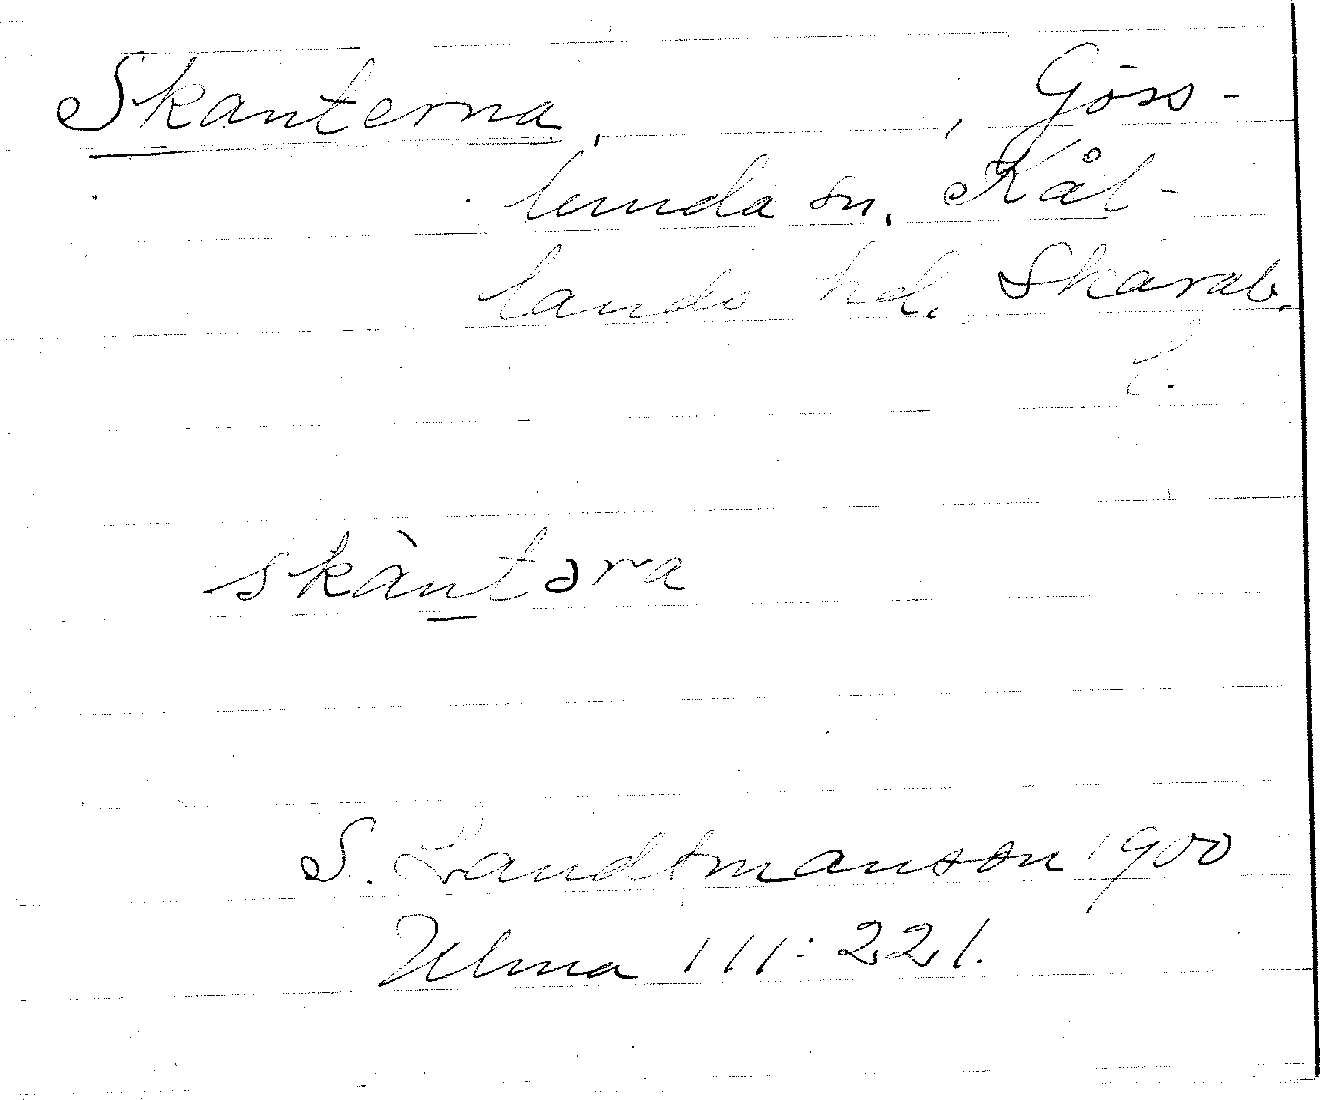 Skanterna, , Göss-
lunda sn. Kål-
lands hd. Skarab.
l.
skàntəra
S. Landtmanson 1900
Ulma 111:221.